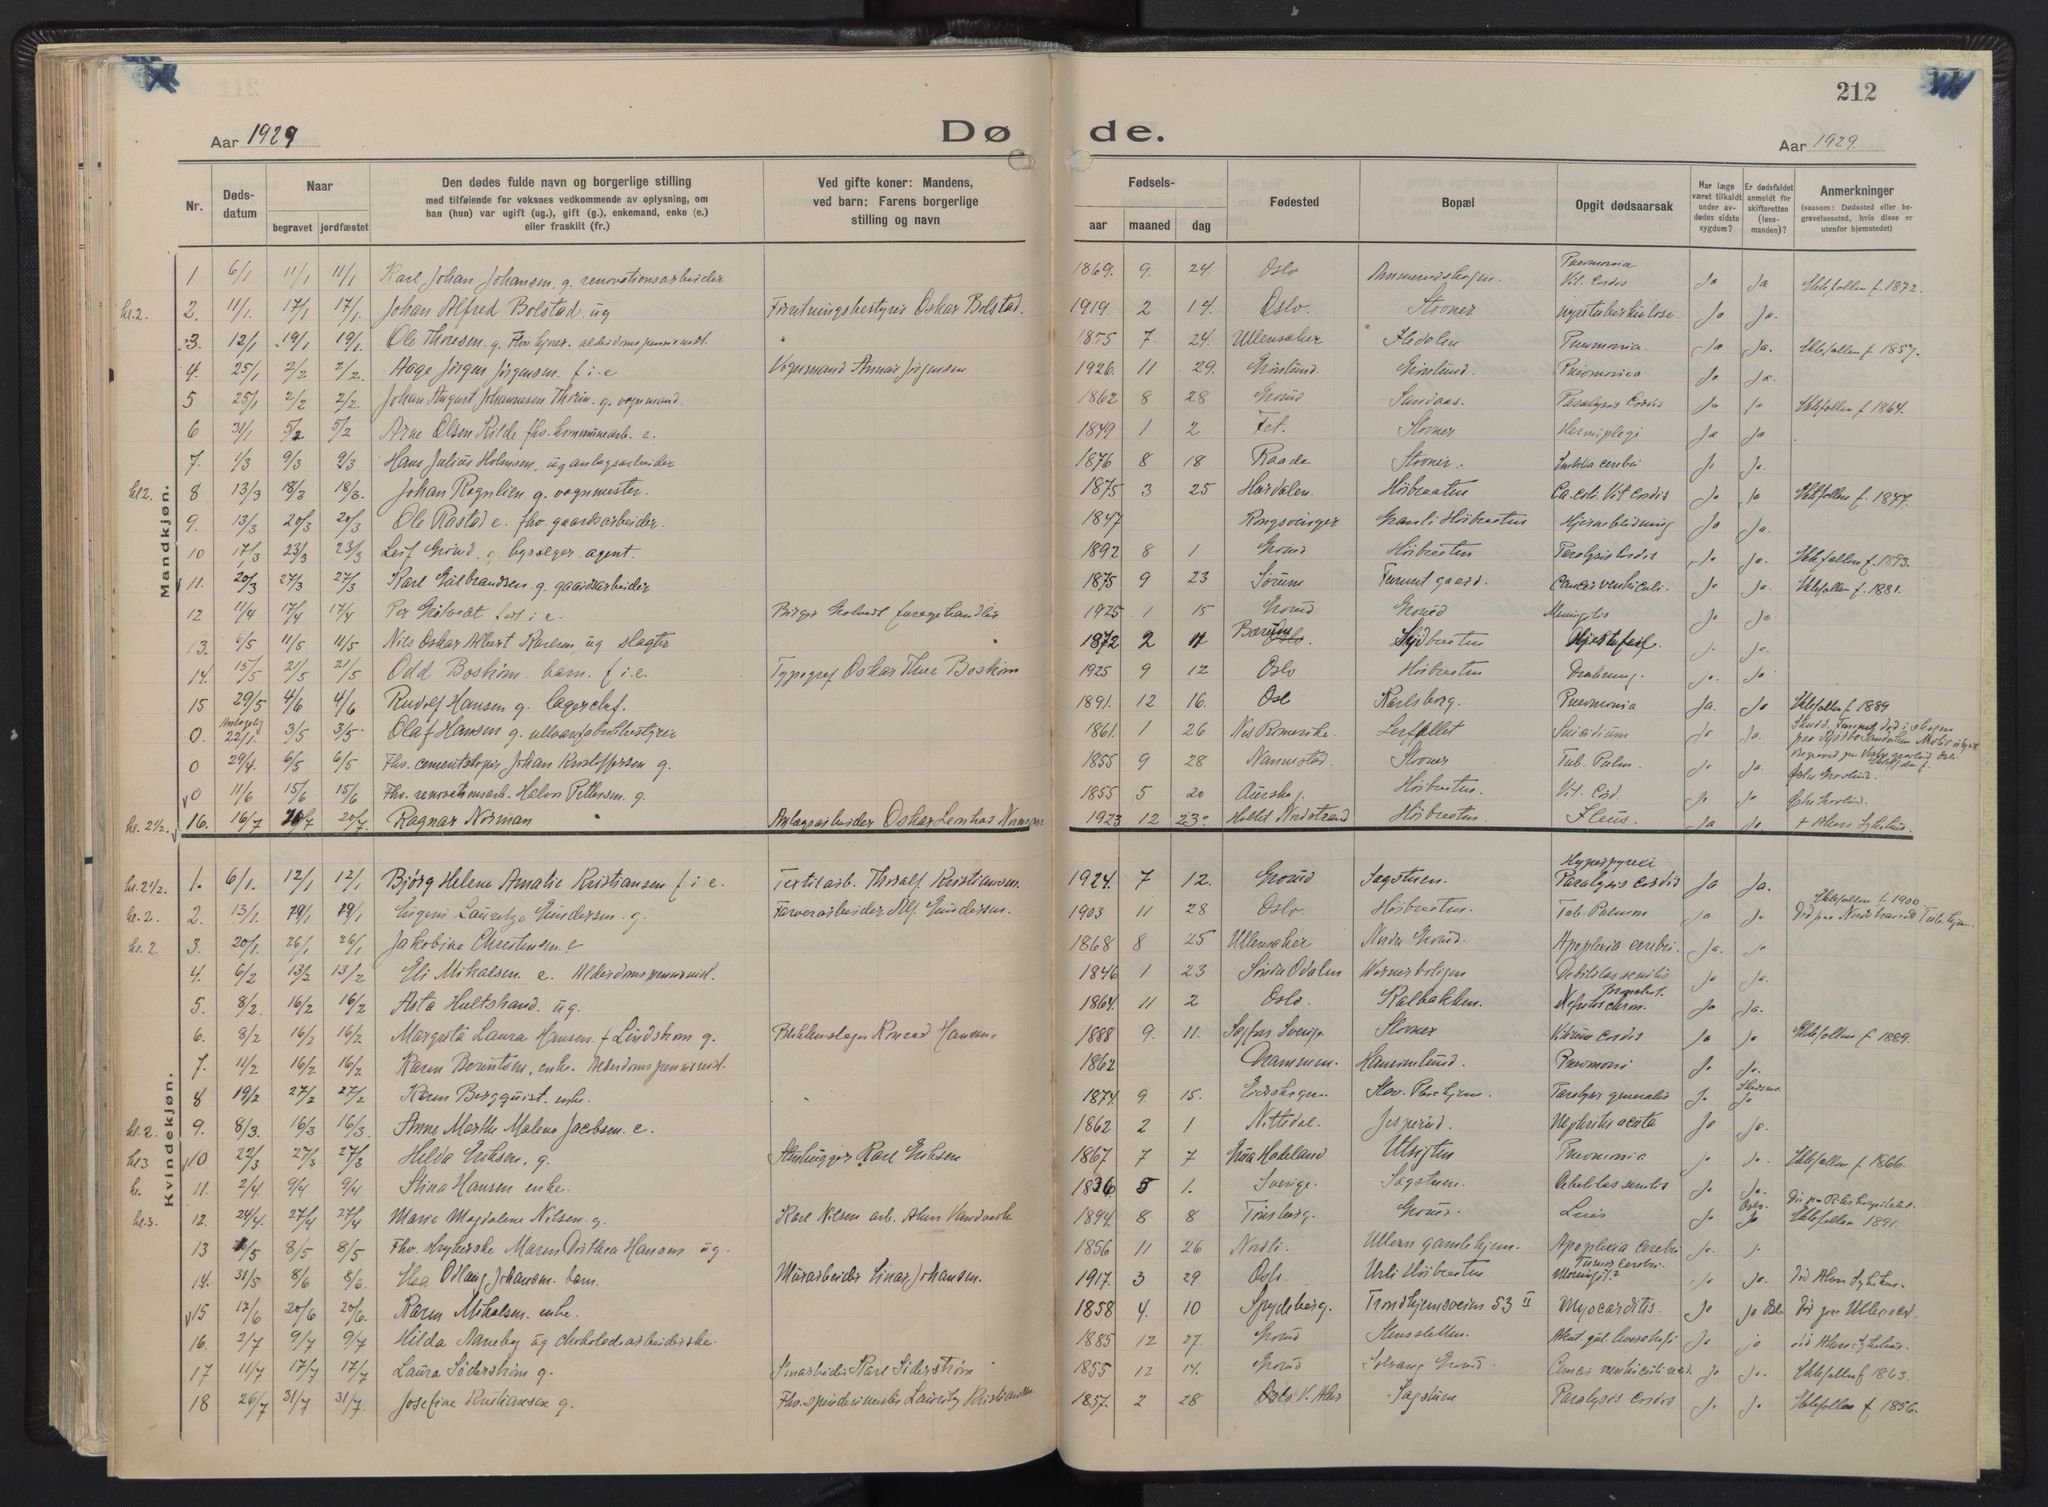 212
Aar 1929
Dø de.
Aar 1929.
Nr.
Døds-
datum
Naar
begravet
jordfæstet
Den dødes fulde navn og borgerlige stilling
med tilføiende for voksnes vedkommende av oplysning, om
han (hun) var ugift (ug.), gift (g.), enkemand, enke (e.)
eller fraskilt (fr.)
Ved gifte koner: Mandens,
ved barn: Farens borgerlige
stilling og navn
Fødsels-
aar
maaned
dag
Fødested
Bopæl
Opgit dødsaarsak
Har læge
været tilkaldt
under av-
dødes sidste
sygdom?
Er dødsfaldet
anmeldt for
skifteretten
(lens-
manden)?
Anmerkninger
(saasom: Dødssted eller be-
gravelsessted, hvis disse er
utenfor hjemstedet)
Mandkjøn.
1 6/1 11/1 11/1 Karl Johan Johansen g. renovationsarbeider 1869. 9. 24. Oslo Pneumonia Vit. Cordis Ja Ja Ektefellen f. 1872.
kl.2. 2. 11/1. 17/1 17/1. Johan Alfred Bolstad ug Forretningsbestyrer Oskar Bolstad. 1919. 2 14. Oslo. Stovner Ja Ja.
3. 12/1 19/1 19/1. Ole Thoresen. g. alderdomspensionist. 1855 7. 24. Ullensaker Pneumonia. Ja Ja. Ektefellen f. 1857.
4. 25/1 2/2 2/2. Aage Jørgen Jørgensen. f i e Vognmand Jørgensen 1926. 11 29. Pneumonia Ja Ja.
5 25/1 2/2 2/2. Johan August Johannesen g. vognmand. 1862 8 28 Grorud Paralysis Cordis Ja Ja Ektefellen f. 1864.
6 31/1 5/2 5/2 Arne Olsen Kilde fhv. kommunearb. e. 1849 1 2 Fet. Stovner Hemiplegi Ja Ja
7. 1/3 9/3 9/3 Hans Julius Holmsen, ug anlegsarbeider 1876 8 18 Raade Stovner. Embolia cerebri Ja Ja.
kl2. 8 13/3 18/3 18/3. Johan Rognlien g. vognmester. 1875 3 25 Høibraaten Vit Cordis Ja Ja Ektefellen f. 1877.
9. 13/3 20/3 20/3 Ole Rastad e. fhv. gaardsarbeider. 1847 Kongsvinger Granli Høibraaten Hjerneblødning Ja Ja.
10 17/3 23/3 23/3 Leif Grorud g. agent. 1892 8 1 Grorud Høibraaten Paralysis Cordis Ja Ja. Ektefellen f. 1893.
11. 20/3 27/3 27/3 Karl Gulbrandsen g. gaardsarbeider 1875 9 23 Sørum Furuset gaard. Cancer ventriculi. Ja Ja. Ektefellen f. 1881.
12 11/4 17/4 17/4 Per født i e. Birger 1925 1 15 Grorud Grorud Meningitis Ja Ja
13. 6/5 11/5 11/5 Nils Oskar Albert Karlsen ug slagter 1872 2 11 Bærum Oslo. Høibraaten Hjertefeil. Ja Ja.
14. 15/5 21/5 21/5 Odd Boström. barn. f i e. Typograf Oskar Ture Boström 1925 9 12 Oslo Høibraaten Drukning. Ja. Ja
15 29/5 4/6 4/6 Rudolf Hansen g. lagerchef. 1891. 12 16. Oslo Karlsborg. Pneumonia Ja. Ja Ektefellen f. 1889
0. Antagelig 22/1. 3/5 3/5 Olaf Hansen g. 1861. 1 26 Nes Romerike. Lerfallet Suicidium Ja Ja.
0 29/4. 6/5 6/5 Fhv. cementstøper Johan Kristoffersen g. 1855 9 28 Nannestad. Stovner Tub. Pulm. Ja Ja.
0 11/6 15/6 15/6 Fhv. renovationsarb. Halvor Pettersen. g. 1855 5 20 Aurskog. Høibraaten. Vit. Cord. Ja Ja
kl. 2 1/2. 16. 16/7 20/7 20/7. Ragnar Norman Anlægsarbeider Oskar Norman 1923 12 23. Nordstrand Høibraaten. Ileus. Ja Ja. + Akers Sykehus.
Kvindekjøn.
kl. 2 1/2. 1. 6/1. 12/1 12/1. Bjørg Helene Amalie Kristiansen f i e. Textilarb. Thoralf Kristiansen. 1924. 7 12. Grorud Sagstuen. Hyperpyrexi Paralysis Cordis Ja Ja.
kl. 2. 2. 13/1. 19/1 19/1. Eugeni Lauretze Gundersen. g. Farverarbeider Alf. Gundersen. 1903 11 28 Oslo. Høibraaten. Tub. Pulmon Ja Ja Ektefellen f. 1900 Død paa Nordstrand Tub. hjem.
kl. 2 3. 20/1. 26/1 26/1. Jakobine Christensen e 1868 8 25 Ullensaker Nordre Grorud. Apoplexia cerebri. Ja. Ja
4. 6/2 13/2 13/2 Eli Mikalsen. e. Alderdomspensionist. 1846 1 23 Søndre Odalen Debilitas senilis Ja Ja.
5. 8/2. 16/2 16/2. Asta Hultstrand. ug. 1864. 11 2 Oslo. Kalbakken. Nefritis chron. Ja Ja.
6. 8/2 16/2 16/2 Margreta Laura Hansen f. Lindstrøm g. Konrad Hansen. 1888 9. 11. Sverige Stovner Vitium cordis Ja Ja Ektefellen f. 1889.
7. 11/2 16/2 16/2 Karen Berentsen, enke. Alderdomspensionist. 1862 Drammen. Hammerlund. Pneumoni Ja Ja.
8 19/2 27/2 27/2. Karen Bergquist. enke. 1874. 9. 15. Eidskogen. Paralyse generalis Ja. Ja
kl. 2. 9. 8/3. 16/3 16/3. Anne Marthe Malene Jacobsen. e. 1862 2 1 Nittedal. Jesperud. Nephritis acuta Ja Ja.
kl3 10 22/3 27/3 27/3 Hilda Eriksen, g. Stenhugger Karl Eriksen 1867 7 7 Utsigten Pneumonia Ja Ja. Ektefellen f. 1866.
kl. 11. 2/4. 9/4 9/4 Stina Hansen enke. 1836 5 1. Sverige. Sagstuen. Debilitas senilis Ja Ja.
kl.3. 12. 24/4. 27/4 27/4 Marie Magdalene Nilsen. g. Karl Nilsen arb. Akers Vandverk 1894 8 8 Tønsberg. Grorud. Lues Ja Oslo. Ja Død paa Rikshospitalet. Ektefellen 1891.
13 1/5 8/5 8/5 Fhv. Maren Dorthea Hansen ug. 1856 11 26 Nordli. Ullern gamlehjem. Apoplexia cerebri Ja. Ja
14. 31/5 8/6 8/6. Elsa Odlaug Johansen. barn. Murarbeider Einar Johansen. 1917. 3 29. Oslo. Høibraaten Tumor cerebri. Meningit? Ja Ja. Død Akers Sykehus.
15 12/6 20/6 20/6 Karen Mikalsen. enke. 1858 4. 10 Spydeberg. Trondhjemsveien 53 II Myocarditis. Ja Ja Oslo Død paa Ullevaal.
16. 2/7 9/7 9/7 Hilda Aaneby ug chokoladearbeiderske. 1885 12 27. Grorud Ja Ja død Akers Sykehus.
17 11/7 17/7 17/7 Laura Söderström g. Karl Söderström 1855 12 14. Grorud Solvang Grorud. Cancer ventriculi Ja. Ja. Ektefellen f 1863.
18 26/7 31/7 31/7. Josefine Kristiansen g. Fhv. spinderimester Lauritz Kristiansen. 1857. 2 28 V. Aker Sagstuen Paralysis Cordis Ja. Ja. Ektefellen f 1856.